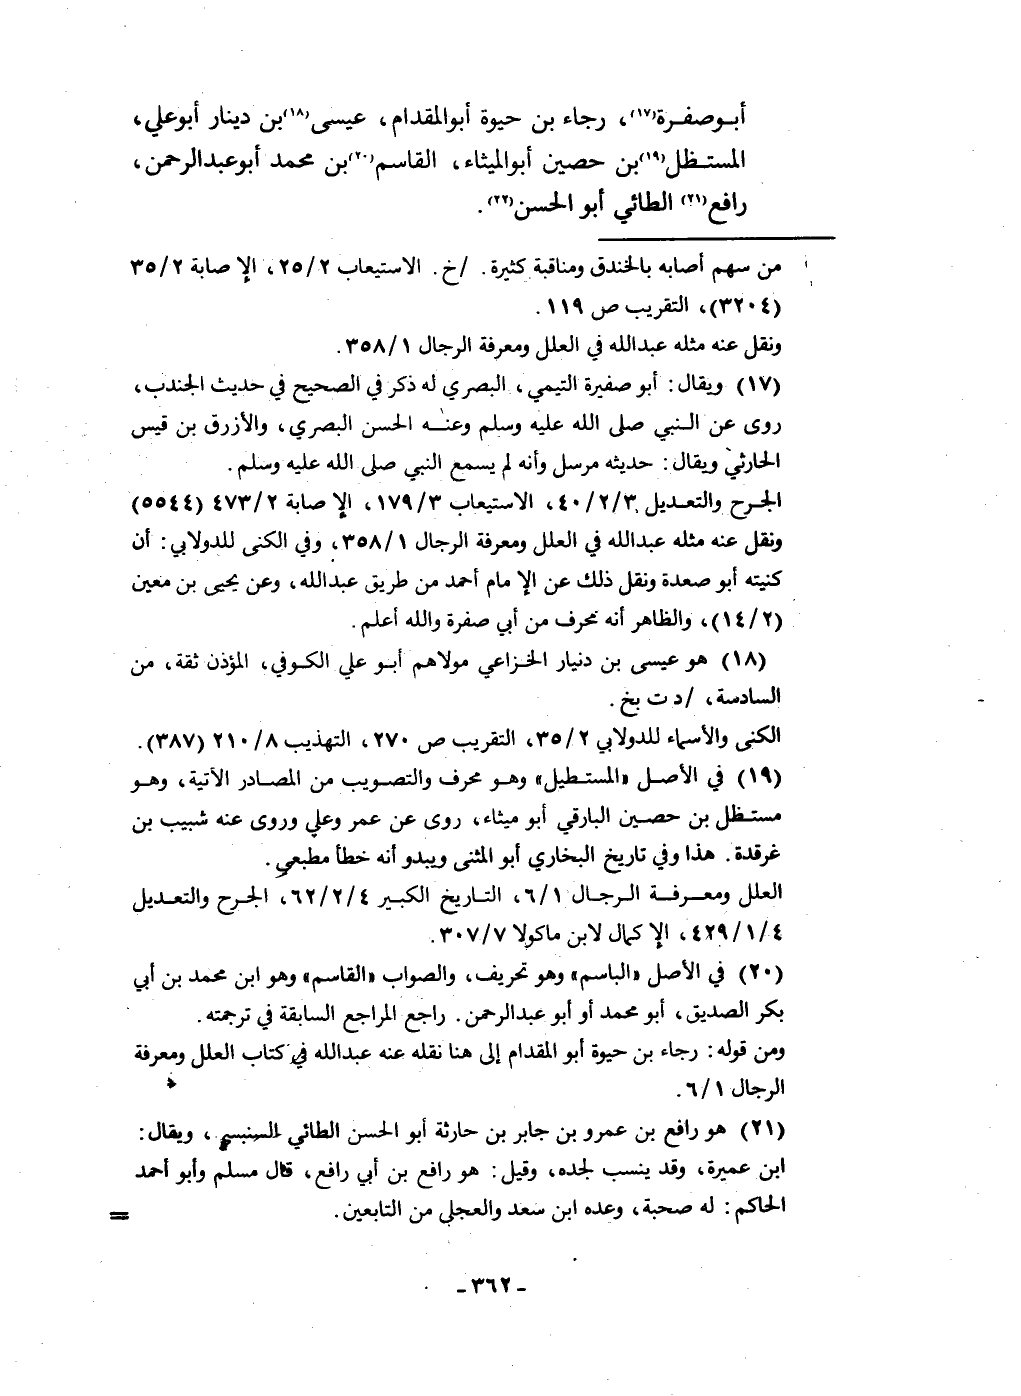 أبـوصفـرة(١٧)، رجاء بن حيوة أبوالمقدام، عيسى(١٨)بن دينار أبوعلي،
المستـظل(١٩)بن حصين أبوالميثاء، القاسم(٢٠)بن محمد أبوعبدالرحمن،
رافع(٢١) الطائي أبو الحسن(٢٢).
من سهم أصابه بالخندق ومناقبة كثيرة. /خ. الاستيعاب ٢/ ٢٥، الإصابة ٢/ ٣٥
(٣٢٠٤)، التقريب ص ١١٩.
ونقل عنه مثله عبدالله في العلل ومعرفة الرجال ١/ ٣٥٨.
(١٧) ويقال: أبو صفيرة التيمي، البصري له ذكر في الصحيح في حديث الجندب،
روى عن النبي صلى الله عليه وسلم وعنه الحسن البصري، والأزرق بن قيس
الحارثي ويقال: حديثه مرسل وأنه لم يسمع النبي صلى الله عليه وسلم.
الجرح والتعديل ٣/ ٢/ ٤٠، الاستيعاب ٣/ ١٧٩، الإصابة ٢/ ٤٧٣ (٥٥٤٤)
ونقل عنه مثله عبدالله في العلل ومعرفة الرجال ١/ ٣٥٨، وفي الكنى للدولابي: أن
كنيته أبو صعدة ونقل ذلك عن الإمام أحمد من طريق عبدالله، وعن يحيى بن معين
(٢/ ١٤)، والظاهر أنه محرف من أبي صفرة والله أعلم.
(١٨) هو عيسى بن دنيار الخزاعي مولاهم أبو علي الكوفي، المؤذن ثقة، من
السادسة، /د ت بخ.
الكنى والأسماء للدولابي ٢/ ٣٥، التقريب ص ٢٧٠، التهذيب ٨/ ٢١٠ (٣٨٧).
(١٩) في الأصل «المستطيل» وهو محرف والتصويب من المصادر الآتية، وهو
مستظل بن حصين البارقي أبو ميثاء، روى عن عمر وعلي وروى عنه شبيب بن
غرقدة. هذا وفي تاريخ البخاري أبو المثنى ويبدو أنه خطأ مطبعي.
العلل ومعرفة الرجال ١/ ٦، التاريخ الكبير ٤/ ٢/ ٦٢، الجرح والتعديل
٤/ ١/ ٤٢٩، الإكمال لابن ماكولا ٧/ ٣٠٧.
(٢٠) في الأصل «الباسم» وهو تحريف، والصواب «القاسم» وهو ابن محمد بن أبي
بكر الصديق، أبو محمد أو أبو عبدالرحمن. راجع المراجع السابقة في ترجمته.
ومن قوله: رجاء بن حيوة أبو المقدام إلى هنا نقله عنه عبدالله في كتاب العلل ومعرفة
الرجال ١/ ٦.
(٢١) هو رافع بن عمرو بن جابر بن حارثة أبو الحسن الطائي السنبسي، ويقال:
ابن عميرة، وقد ينسب لجده، وقيل: هو رافع بن أبي رافع، قال مسلم وأبو أحمد
الحاكم: له صحبة، وعده ابن سعد والعجلي من التابعين. =
- ٣٦٢ -